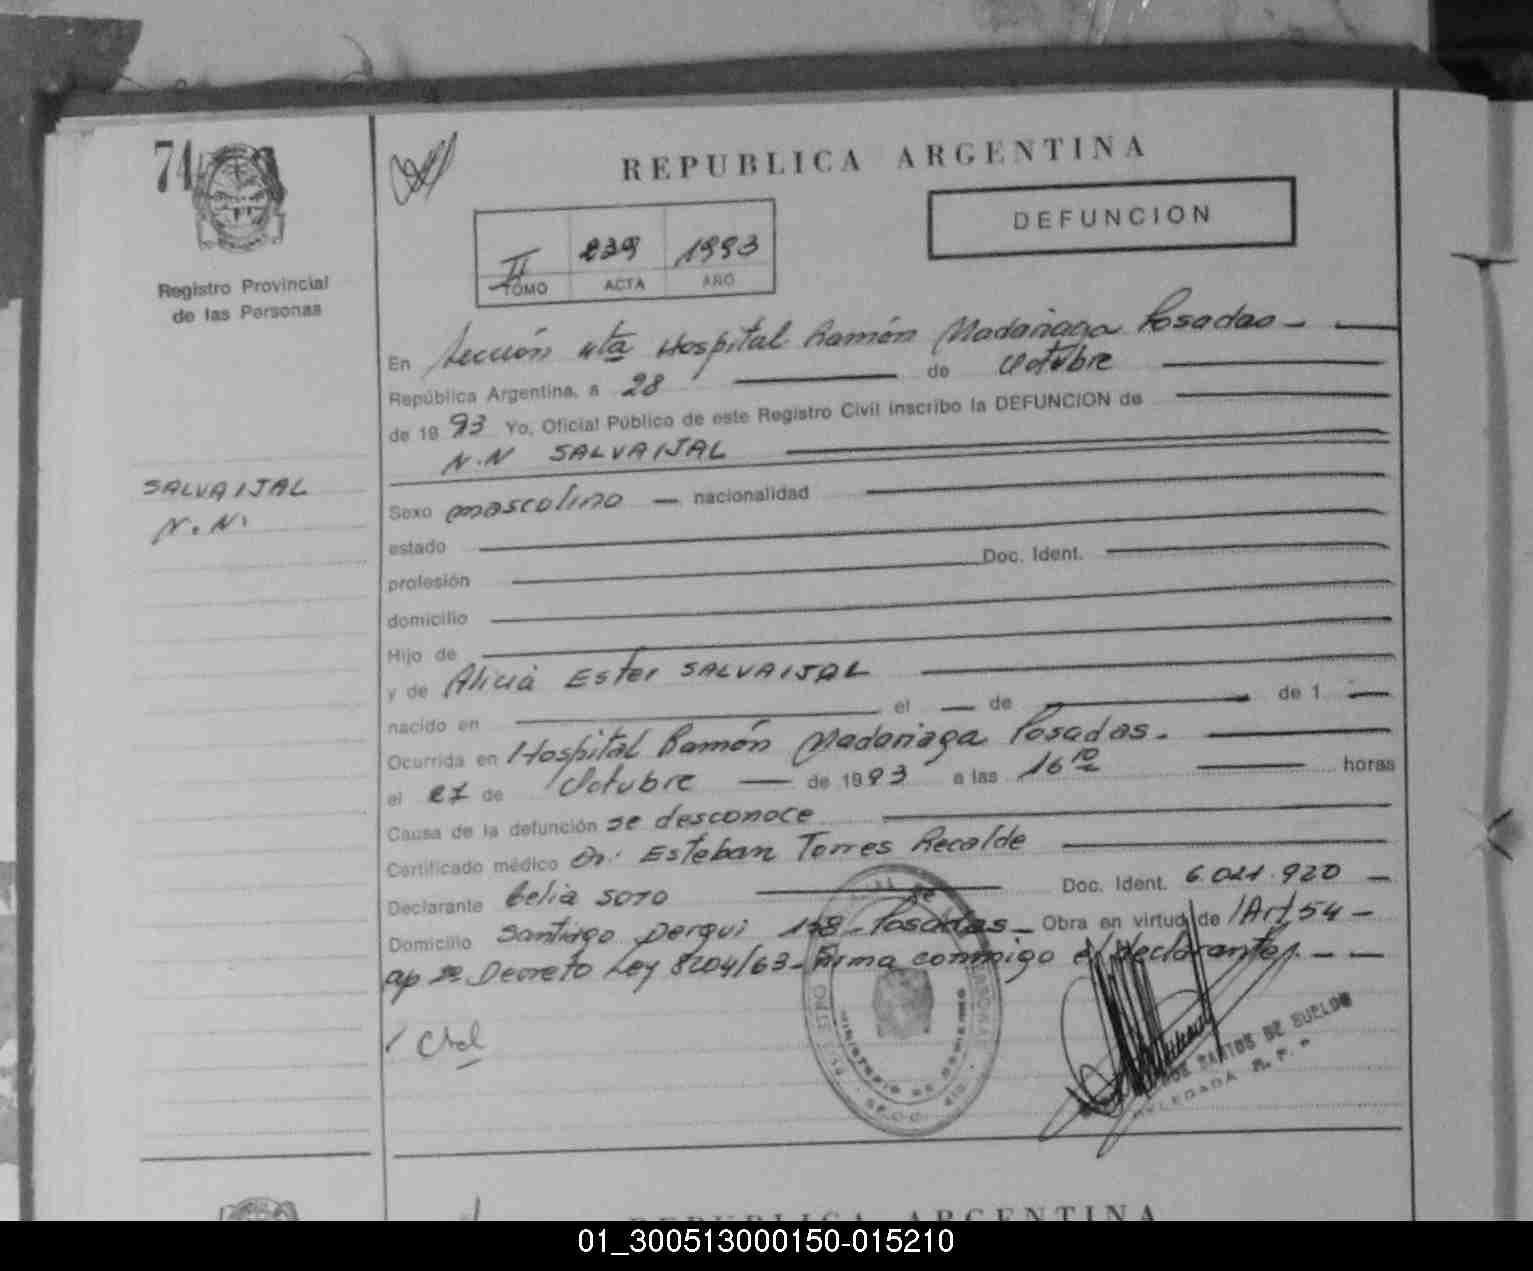 74
REPUBLICA ARGENTINA
DEFUNCION
II 239 1993
TOMO ACTA AÑO
Registro Provincial
de las Personas
En Sección 4ta Hospital Ramón Madariaga Posadas
República Argentina, a 28 de Octubre
de 19 93 Yo, Oficial Público de este Registro Civil inscribo la DEFUNCION de
N.N SALVAIJAL
SALVAIJAL
N.N.
Sexo masculino nacionalidad
estado
profesión Doc. Ident.
domicilio
Hijo de
y de Alicia Ester SALVAIJAL
nacido en el de de 1
Ocurrida en Hospital Ramón Madariaga Posadas.
el 27 de Octubre de 1993 a las 16 10 horas
Causa de la defunción se desconoce
Certificado médico Dr. Esteban Torres Recalde
Declarante Celia SOTO Doc. Ident. 6.021.920
Domicilio Santiago Derqui Posadas Obra en virtud de Art 54
ap 2o Decreto Ley 8204/63 - Firma conmigo el declarante.
MINISTERIO DE GOBIERNO
DOS SANTOS DE SUELDO
DELEGADA R. P. P.
REPUBLICA ARGENTINA
01_300513000150-015210